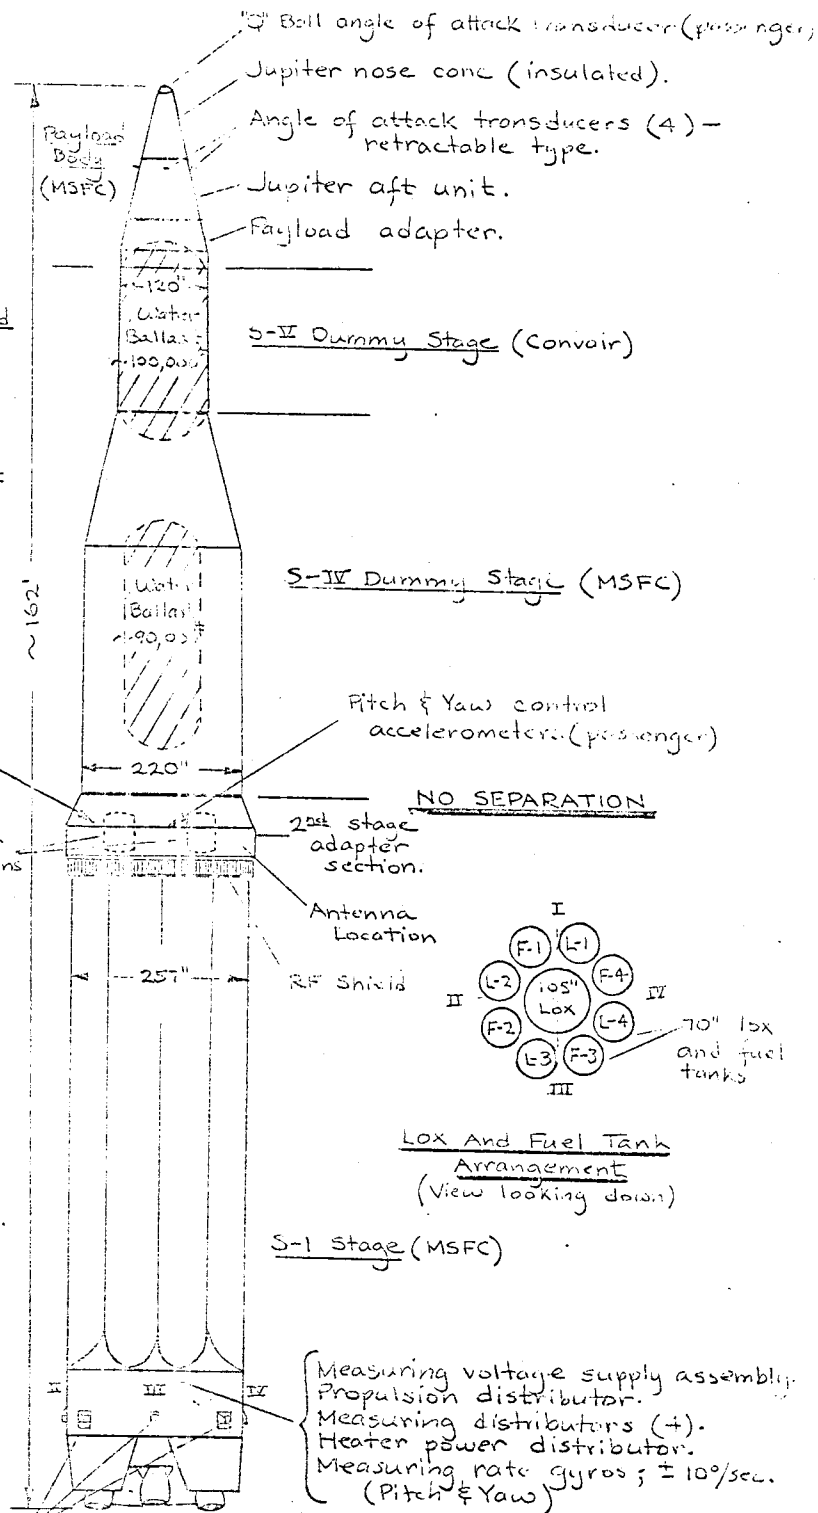 "Q" Ball angle of attack transducer (passenger)
Jupiter nose cone (insulated).
Angle of attack transducers (4) –
retractable type.
Payload
Body
(MSFC)
Jupiter aft unit.
Payload adapter.
~120"
Water
Ballast
~100,000#
S-V Dummy Stage (Convair)
~162'
S-IV Dummy Stage (MSFC)
Water
Ballast
~90,000#
Pitch & Yaw control
accelerometers (passenger)
220"
NO SEPARATION
2nd stage
adapter
section.
ns
Antenna
Location
257"
RF Shield
I
F-1 L-1
L-2 F-4
105"
Lox
II IV
F-2 L-4
L-3 F-3
III
70" lox
and fuel
tanks
Lox And Fuel Tank
Arrangement
(View looking down)
S-1 Stage (MSFC)
II III IV
Measuring voltage supply assembly.
Propulsion distributor.
Measuring distributors (4).
Heater power distributor.
Measuring rate gyros; ± 10°/sec.
(Pitch & Yaw)